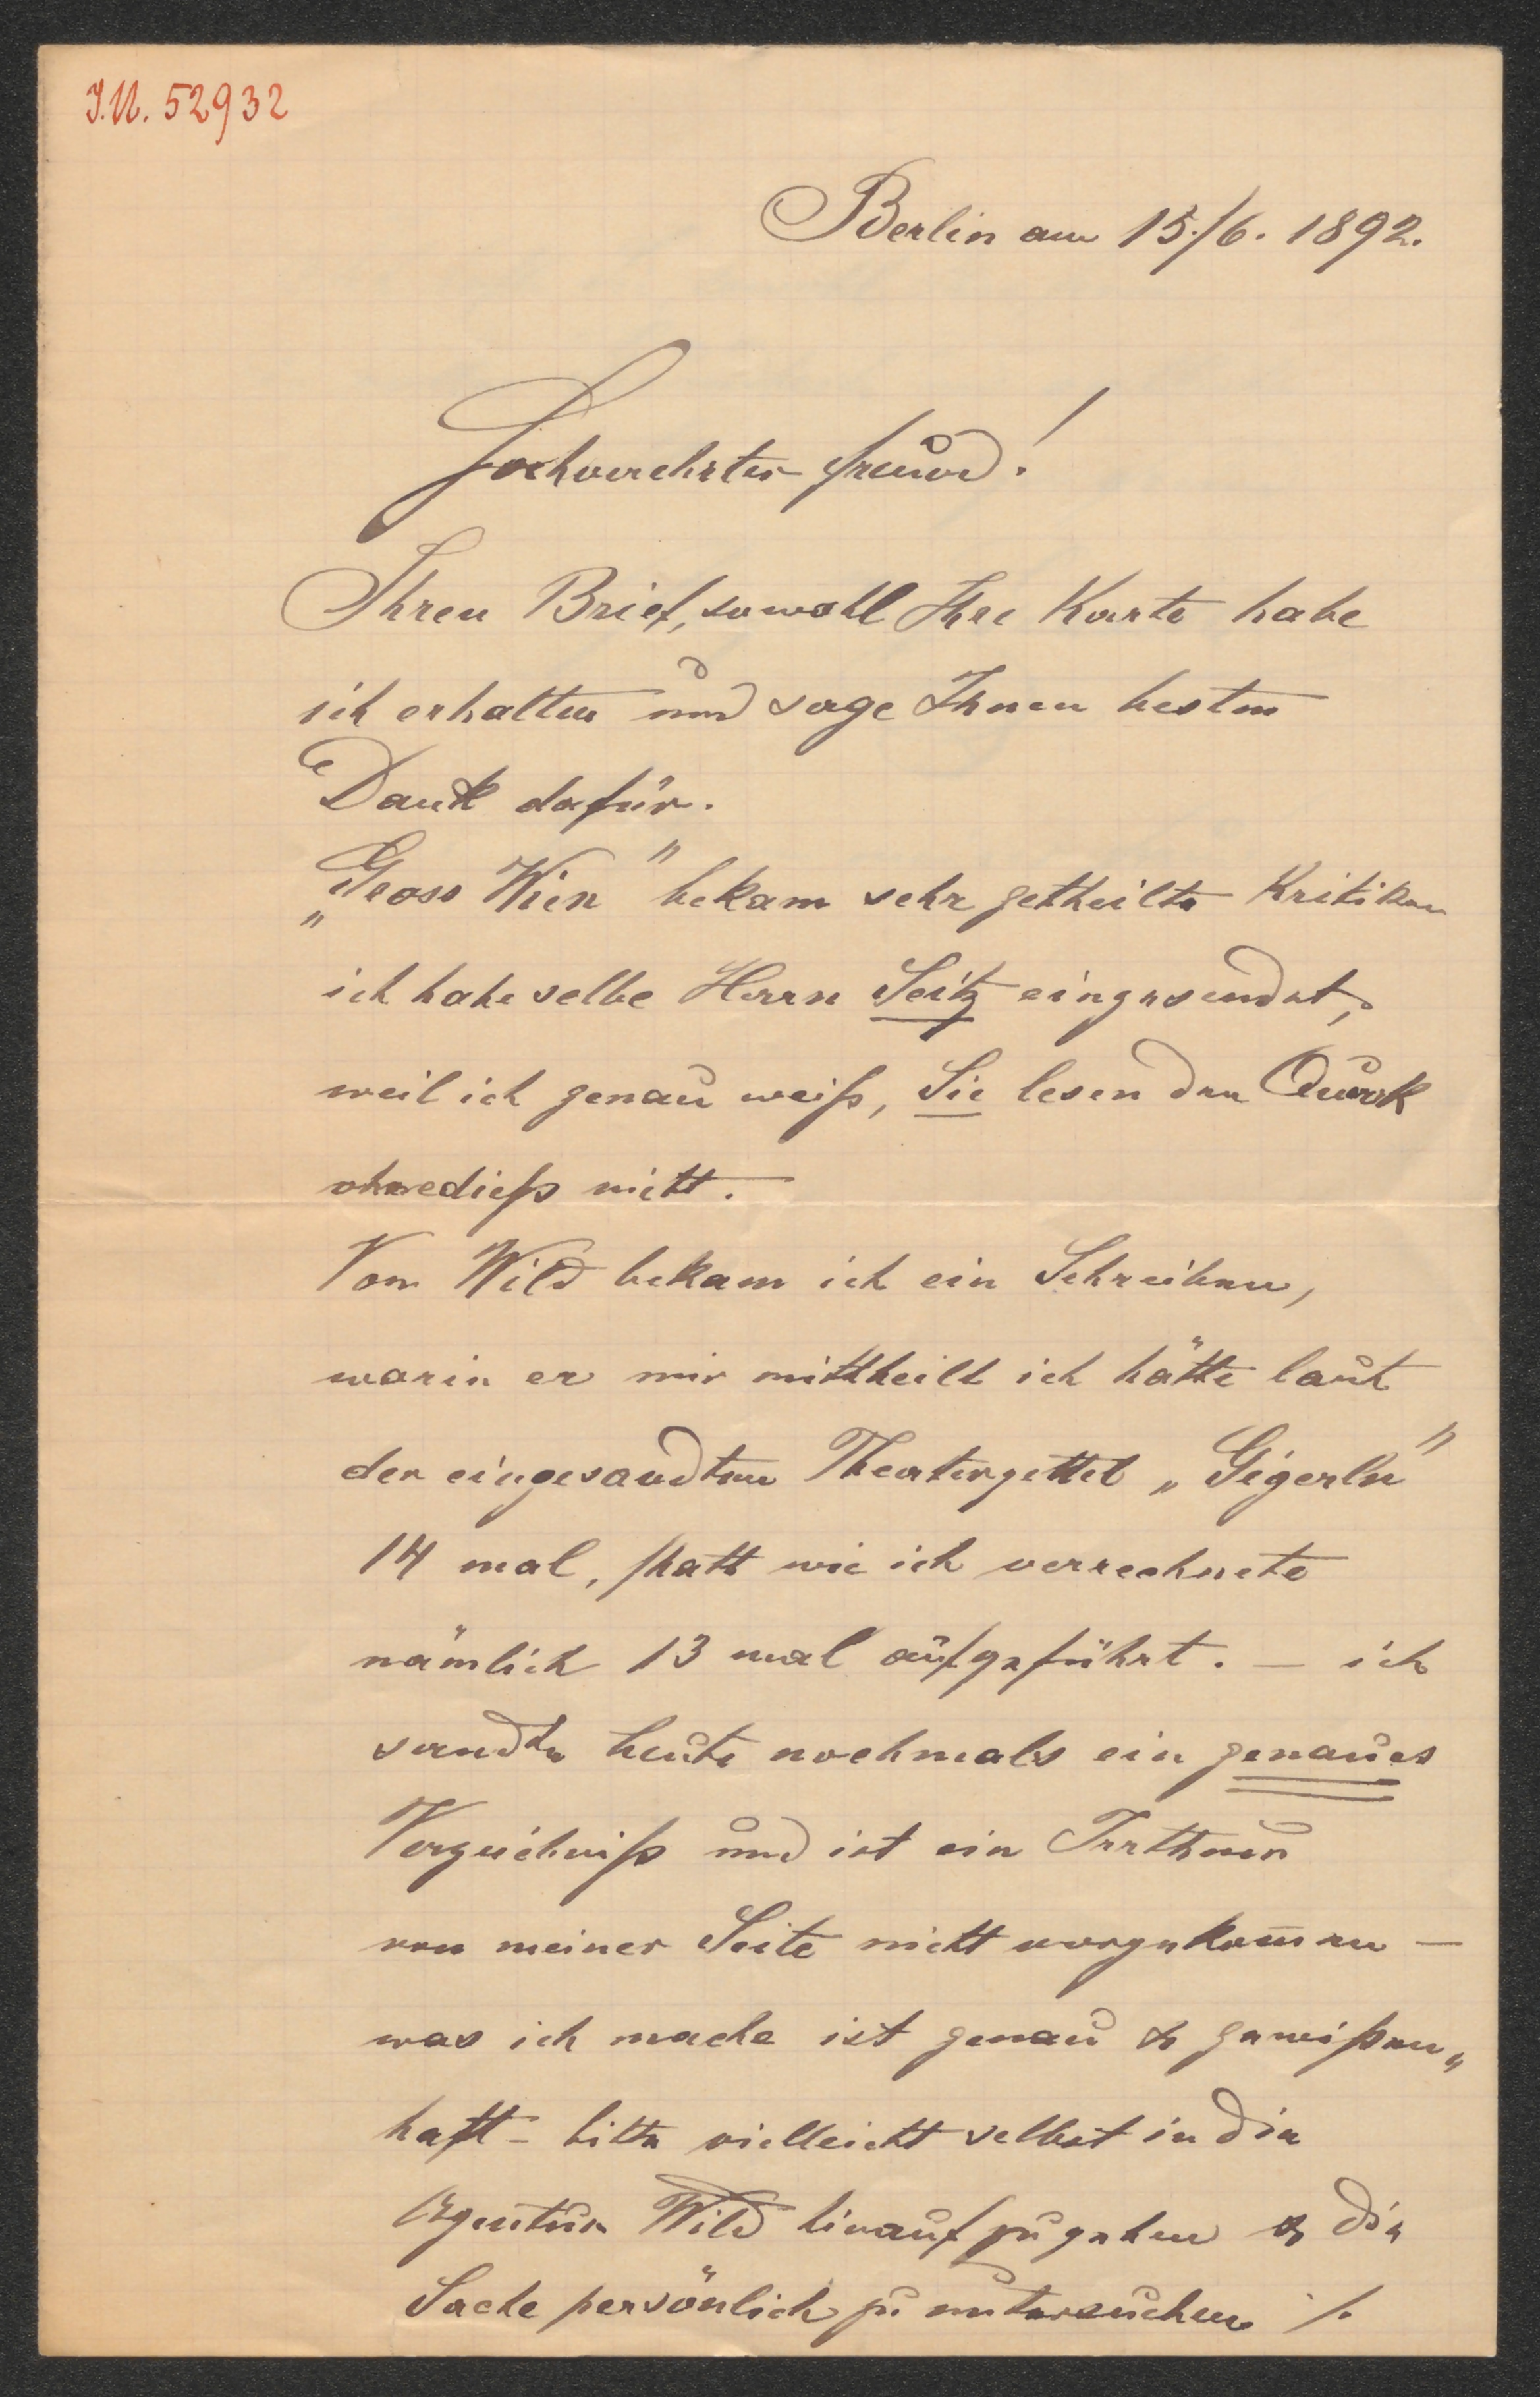 J.N. 52932
Berlin am 15./6. 1892.
Hochverehrter Freund!
Ihren Brief, sowohl Ihre Karte habe
ich erhalten und sage Ihnen besten
Dank dafür.
„Gross Wien" bekam sehr getheilte Kritiken
ich habe selbe Herrn Seitz eingesendet,
weil ich genau weiß, Sie lesen den Quark
ohnedieß nicht.
Von Wild bekam ich ein Schreiben,
worin er mir mittheilt ich hätte laut
der eingesandten Theaterzettel „Gigerln"
14 mal, statt wie ich verrechnete
nämlich 13 mal aufgeführt. — ich
sandte heute nochmals ein genaues
Verzeichniß und ist ein Irrthum
von meiner Seite nicht vorgekom̄en —
was ich mache ist genau & gewißen„
haft – bitte vielleicht selbst in die
Agentur Wild hinauf zu gehen & die
Sache persönlich zu untersuchen /.